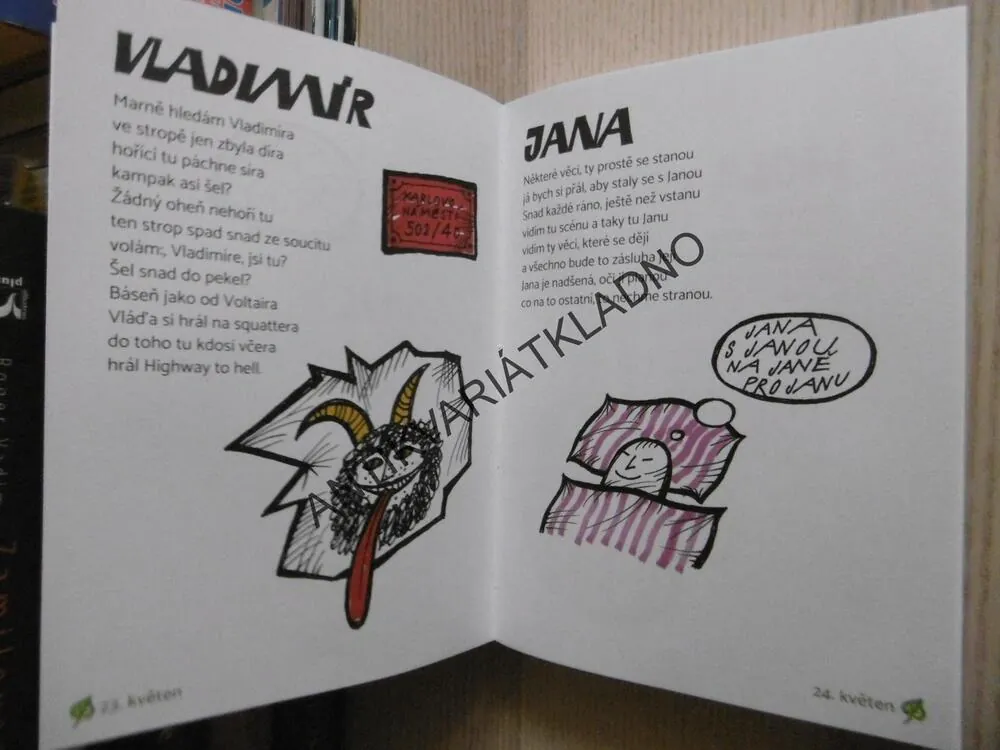 VLADIMÍR
Marně hledám Vladimíra
ve stropě jen zbyla díra
hořící tu páchne síra
kampak asi šel?
Žádný oheň nehoří tu
ten strop spad snad ze soucitu
volám:, Vladimíre, jsi tu?
Šel snad do pekel?
Báseň jako od Voltaira
Vláďa si hrál na squattera
do toho tu kdosi včera
hrál Highway to hell.
KARLOVO
NÁMĚSTÍ
502/40
23. květen
JANA
Některé věci, ty prostě se stanou
já bych si přál, aby staly se s Janou
Snad každé ráno, ještě než vstanu
vidím tu scénu a taky tu Janu
vidím ty věci, které se dějí
a všechno bude to zásluha její
Jana je nadšená, oči jí planou
co na to ostatní, to nechme stranou.
JANA
S JANOU
NA JANĚ
PRO JANU
24. květen
ANTIKVARIÁTKLADNO